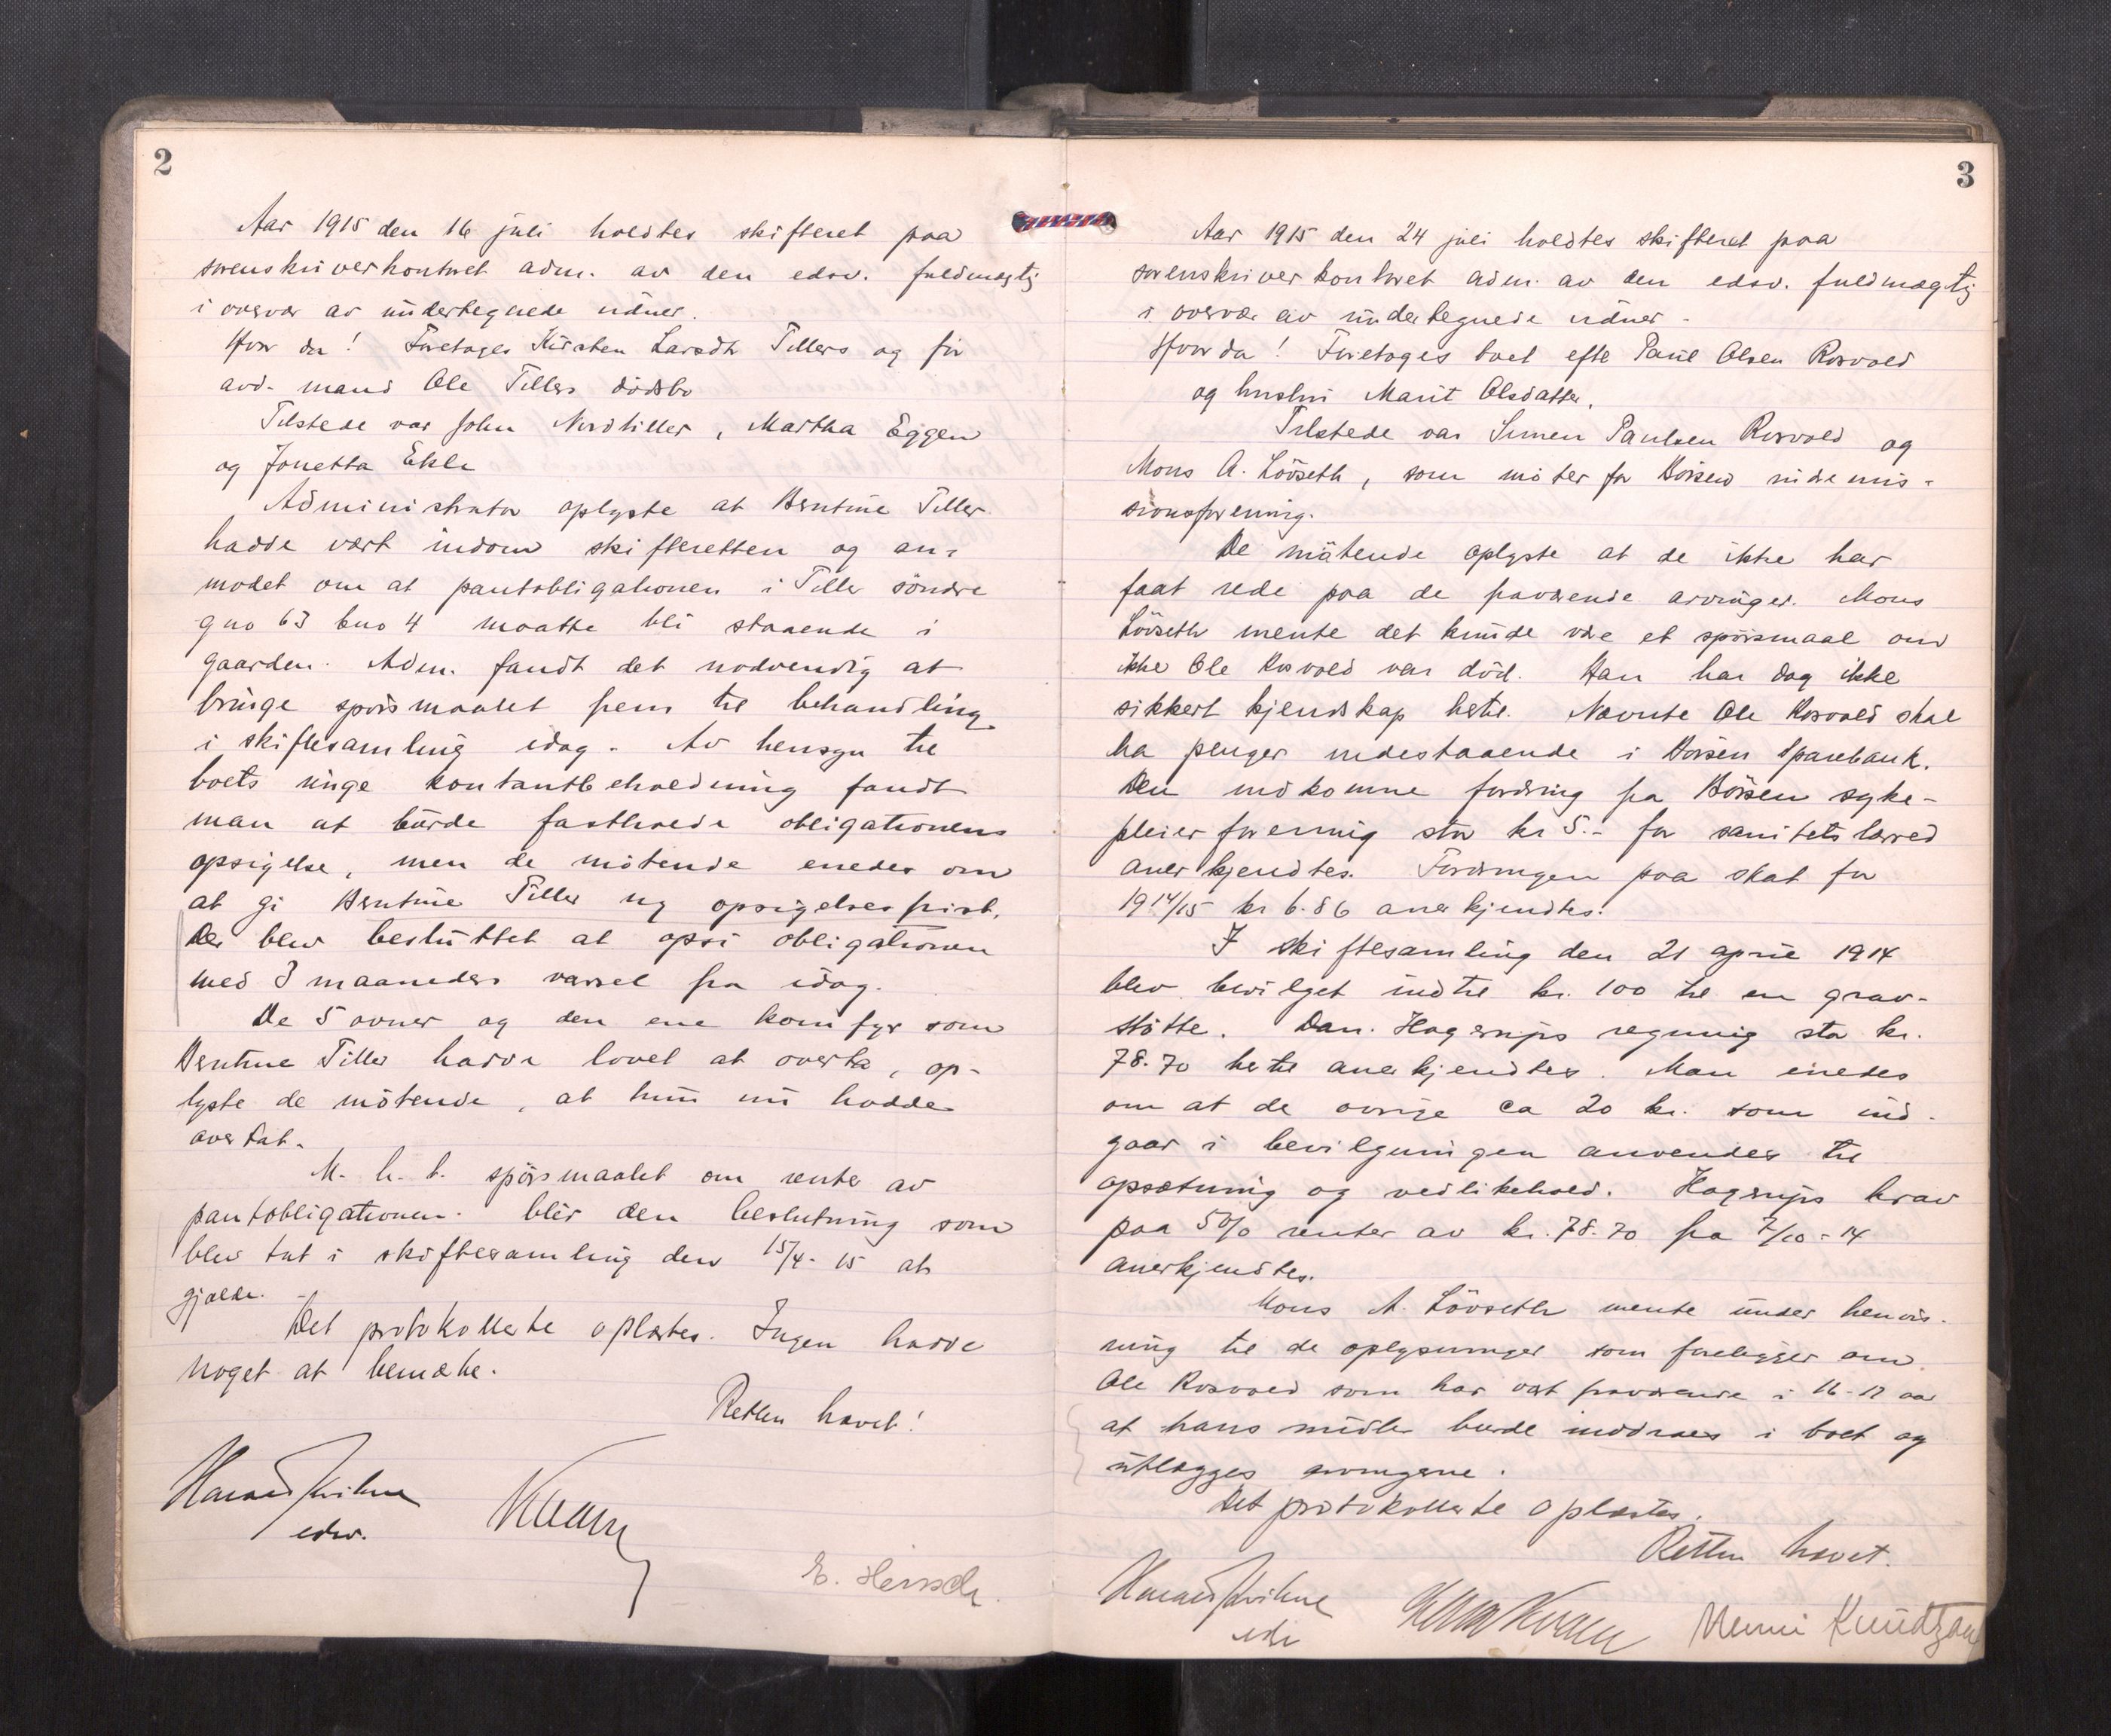 2
Aar 1915 den 16 juli holdtes skifteret paa
sorenskriverkontoret adm. av den edsv. fuldmægtig
i overvær av undertegnede vidner.
Hvor da! Foretages Kirsten Larsdtr Tillers og før
avd. mand Ole Tillers dödsbo
Tilstede var John Nordtiller, Martha Eggen
og Jonetta Ekle
Administrator oplyste at Berntine Tiller
hadde vært indom skifteretten og an-
modet om at pantobligationen i Tiller söndre
gno 63 bno 4 maatte bli staaende i
gaarden. Adm. fandt det nødvendig at
bringe spörsmaalet frem til behandling
i skiftesamling idag. Av hensyn til
boets ringe kontantbeholdning fandt
man at burde fastholde obligationens
opsigelse, men de mötende enedes om
at gi Berntine Tiller ny opsigelsesfrist.
Der blev besluttet at opsi obligationen
med 3 maaneders varsel fra idag.
De 5 ovner og den ene komfyr som
Berntine Tiller hadde lovet at overta, op-
lyste de mötende, at hun nu hadde
overtat.
M. h. t. spörsmaalet om renter av
pantobligationen. blir den beslutning som
blev tat i skiftesamling den 15/4-15 at
gjælde.
Det protokollerte oplæstes. Ingen hadde
noget at bemerke.
Retten hævet!
edsv.
E. Hirsch.
3
Aar 1915 den 24 juli holdtes skifteret paa
sorenskriverkontoret adm. av den edsv. fuldmægtig
i overvær av undertegnede vidner -
Hvor da! Foretages boet efter Paul Olsen Rosvold
og hustru Marit Olsdatter.
Tilstede var Simen Paulsen Rosvold og
Mons A. Lövseth, som möter for Börsen indremis-
sionsforening.
De mötende oplyste at de ikke har
faat rede paa de fraværende arvinger. Mons
Lövseth mente det kunde være et spörsmaal om
ikke Ole Rosvold var död. Han har dog ikke
sikkert kjendskap hertil. Nævnte Ole Rosvold skal
ha penger indestaaende i Börsen Sparebank.
Den indkomne fordring fra Börsen syke-
pleierforening stor kr 5.- for sanitetslærred
anerkjendtes. Fordringen paa skat for
1914/15 kr 6.86 anerkjendtes.
I skiftesamling den 21 april 1914
blev bevilget indtil kr. 100 til en grav-
stötte. Dan. Hagerups regning stor kr.
78.70 hertil anerkjendtes. Man enedes
om at de øvrige ca 20 kr. som ind-
gaar i bevilgningen anvendes til
opsætning og vedlikehold. Hagerups krav
paa 5% renter av kr. 78.70 fra 7/10-14
anerkjendtes.
Mons A. Lövseth mente under henvis-
ning til de oplysninger som foreligger om
Ole Rosvold som har vært fraværende i 16-17 aar
at hans midler burde inddraes i boet og
utlægges arvingerne.
Det protokollerte oplæstes.
Retten hævet.
edsv